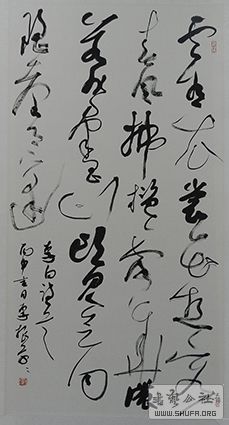 云想衣裳花想容
春风拂槛露华浓
若非群玉山头见会向
瑶台月下逢
李白诗
丙申春日
公社
WWW.SHUFA.ORG